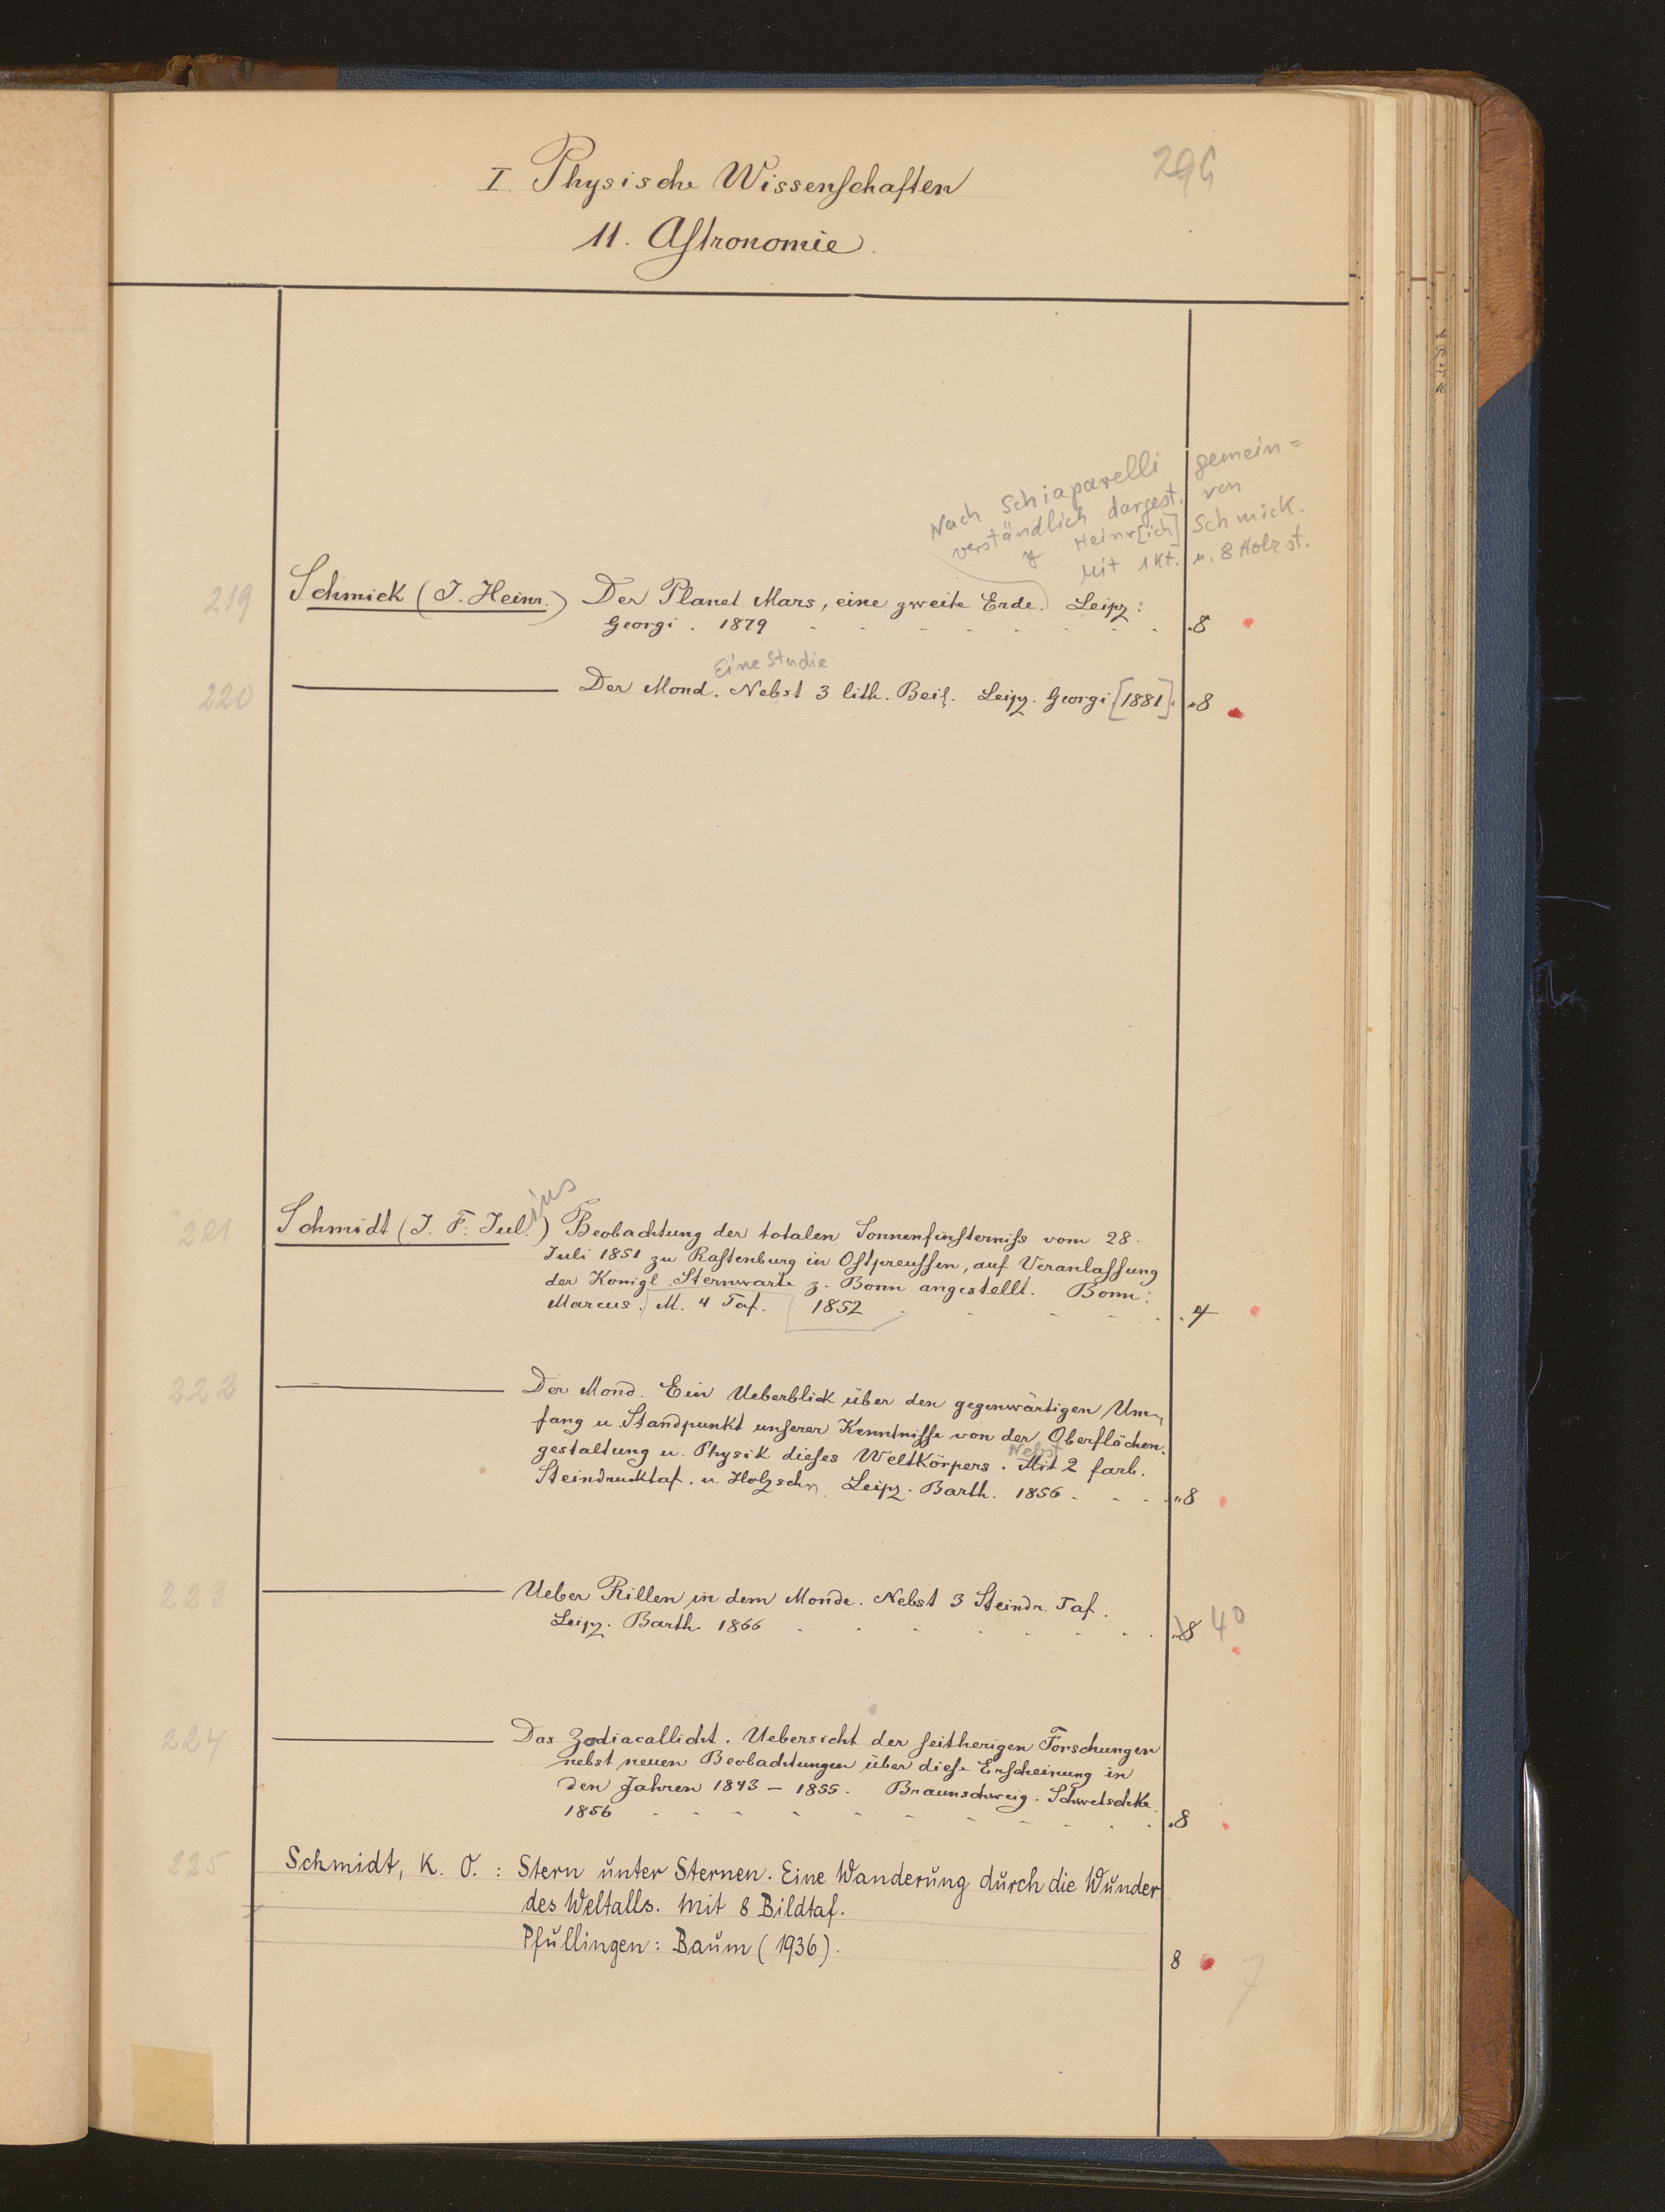 I. Physische Wissenschaften
11. Astronomie.
Nach Schiaparelli gemein=
verständlich dargest. von
J. Heinr[ich] Schmick.
Mit 1 Kt. u. 8 Holzst.
219 Schmick (J. Heinr.) Der Planet Mars, eine zweite Erde. Leipz:
Georgi. 1879 8
Eine Studie
220 Der Mond. Nebst 3 lith. Beil. Leipz. Georgi [1881]. 8
ius
221 Schmidt (J. F. Jul.) Beobachtung der totalen Sonnenfinsterniss vom 28.
Juli 1851 zu Rastenburg in Ostpreussen, auf Veranlassung
der Königl. Sternwarte z. Bonn angestellt. Bonn:
Marcus. M. 4 Taf. 1852 4
222 Der Mond. Ein Ueberblick über den gegenwärtigen Um-
fang u. Standpunkt unserer Kenntnisse von der Oberflächen-
Nebst
gestaltung u. Physik dieses Weltkörpers. Mit 2 farb.
Steindrucktaf. u. Holzschn. Leipz. Barth. 1856 8
223 Ueber Rillen in dem Monde. Nebst 3 Steindr. Taf.
Leipz. Barth 1866 8 4°
224 Das Zodiacallicht. Uebersicht der seitherigen Forschungen
nebst neuen Beobachtungen über diese Erscheinung in
den Jahren 1843 – 1855. Braunschweig. Schwetschke.
1856 8
225 Schmidt, K. O. : Stern unter Sternen. Eine Wanderung durch die Wunder
des Weltalls. Mit 8 Bildtaf.
Pfullingen: Baum (1936). 8 7